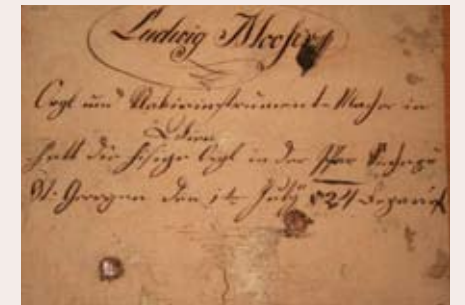 Ludwig Mooser
Orgl und Klavirinstrumente-Macher in
hatt die hisige Orgl in der Pfar Kirche zu
St. Georgen den 1te July 824 Reparirt